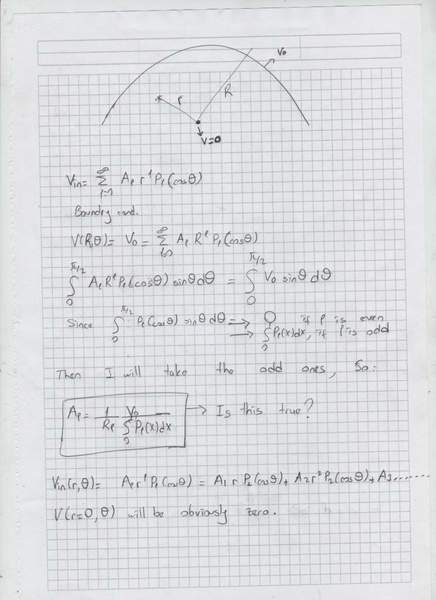 V₀
r
R
V=0
Vin= ∞Σl=1 Aₗ rˡ Pₗ(cosθ)
Boundry cond.
V(R,θ)= V₀ = ∞Σl=0 Aₗ Rˡ Pₗ(cosθ)
∫₀^π/2 Aₗ Rˡ Pₗ(cosθ) sinθdθ = ∫₀^π/2 V₀ sinθ dθ
Since ∫₀^π/2 Pₗ(cosθ) sinθdθ => 0 if l is even
=> ∫₀ Pₗ(x)dx, if l is odd
Then I will take the odd ones, So:
Aₗ = 1/Rₗ V₀/∫₀Pₗ(x)dx → Is this true?
Vin(r,θ)= Aₗ rˡ Pₗ(cosθ) = A₁ r P₁(cosθ) + A₂ r² P₂(cosθ) + A₃.......
V(r=0,θ) will be obviously zero.